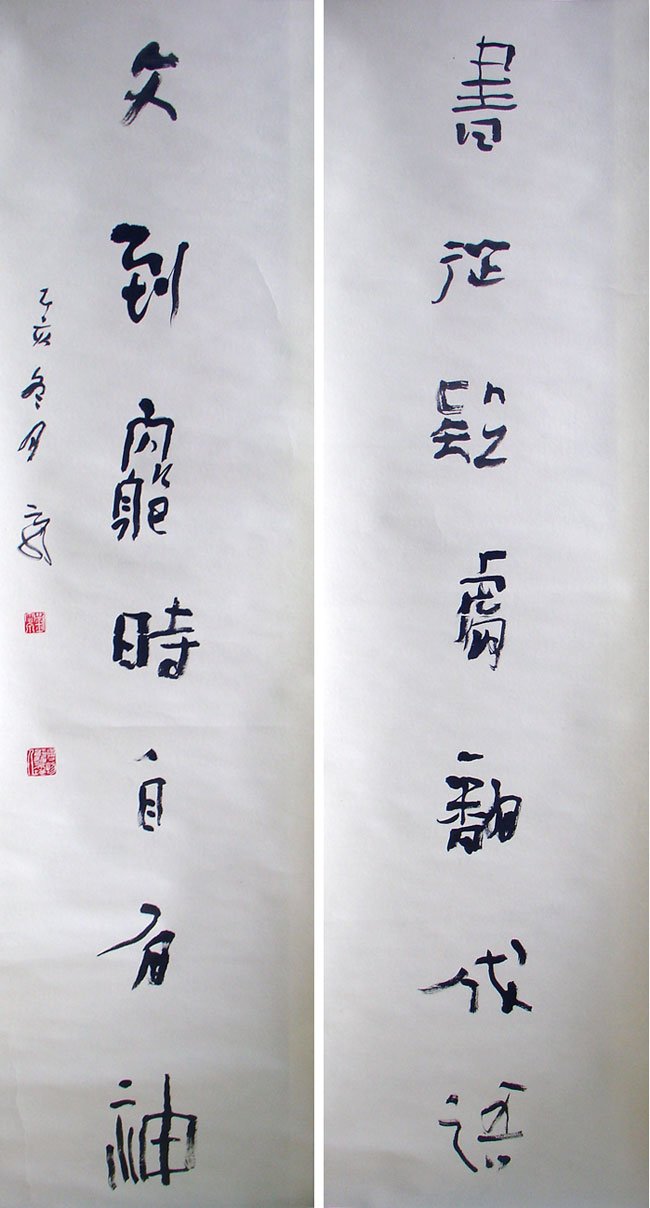 書從疑處翻成語
文到窮時自有神
乙亥冬月